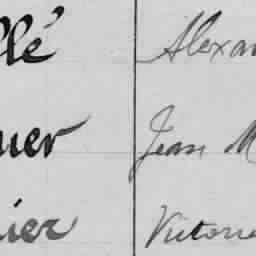 llé Alexan
uer Jean M
ier Victorie